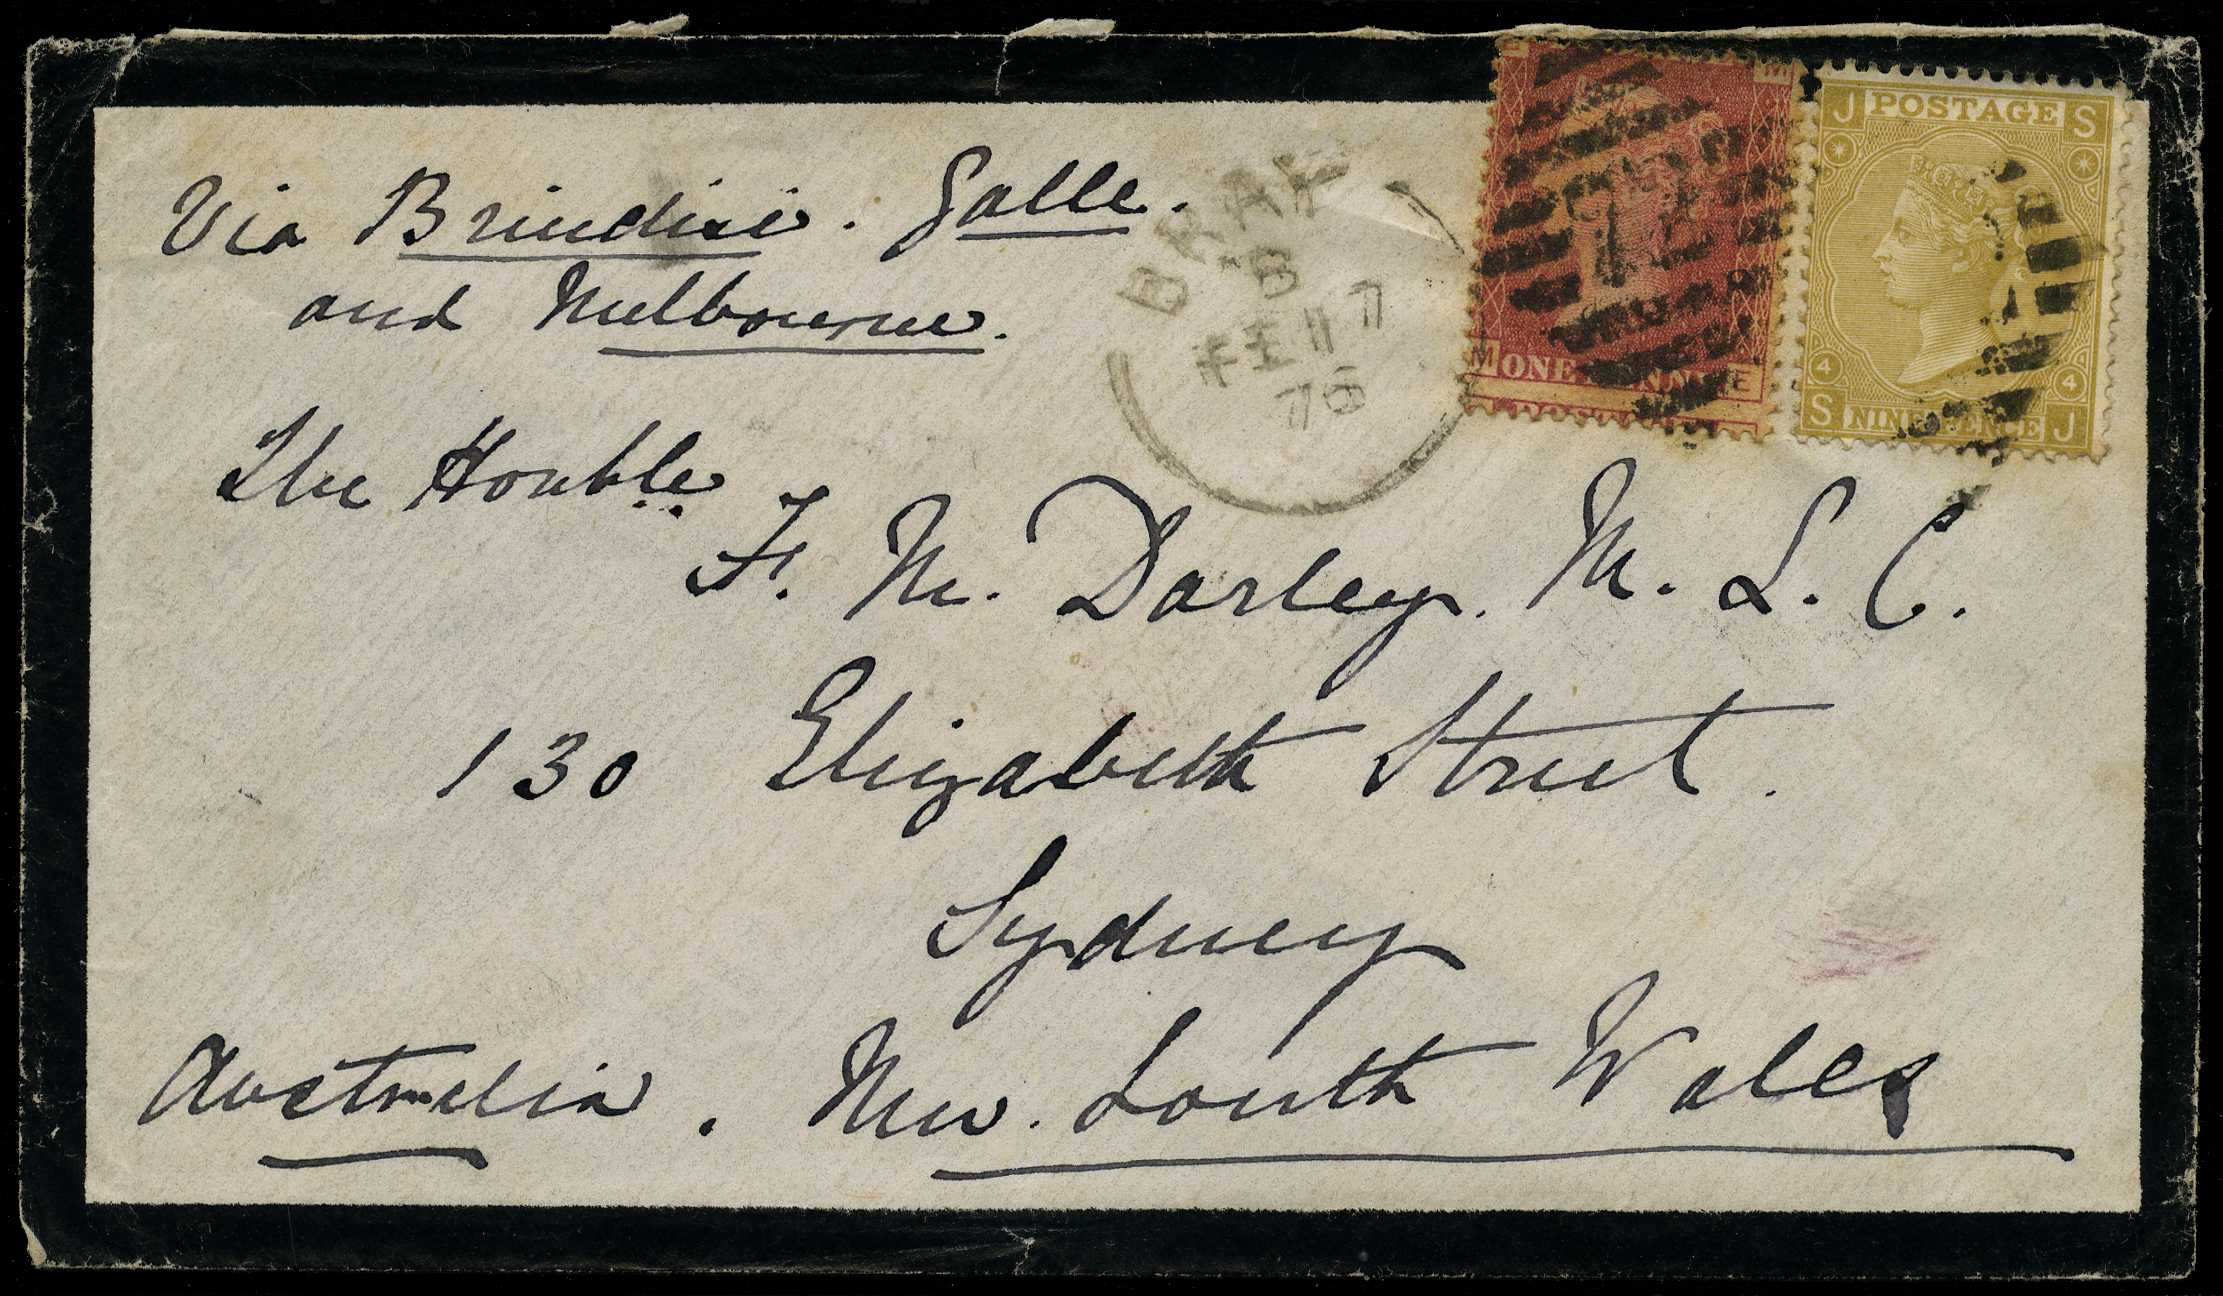 Via Brindisi. Galle.
and Melbourne.
BRAY
B
FE 17
76
E M
M ONE PENNY E
J POSTAGE S
4 4
S NINE PENCE J
The Honble..
F. M. Darley. M. L. C.
130 Elizabeth Street.
Sydney
Australia. New. South Wales